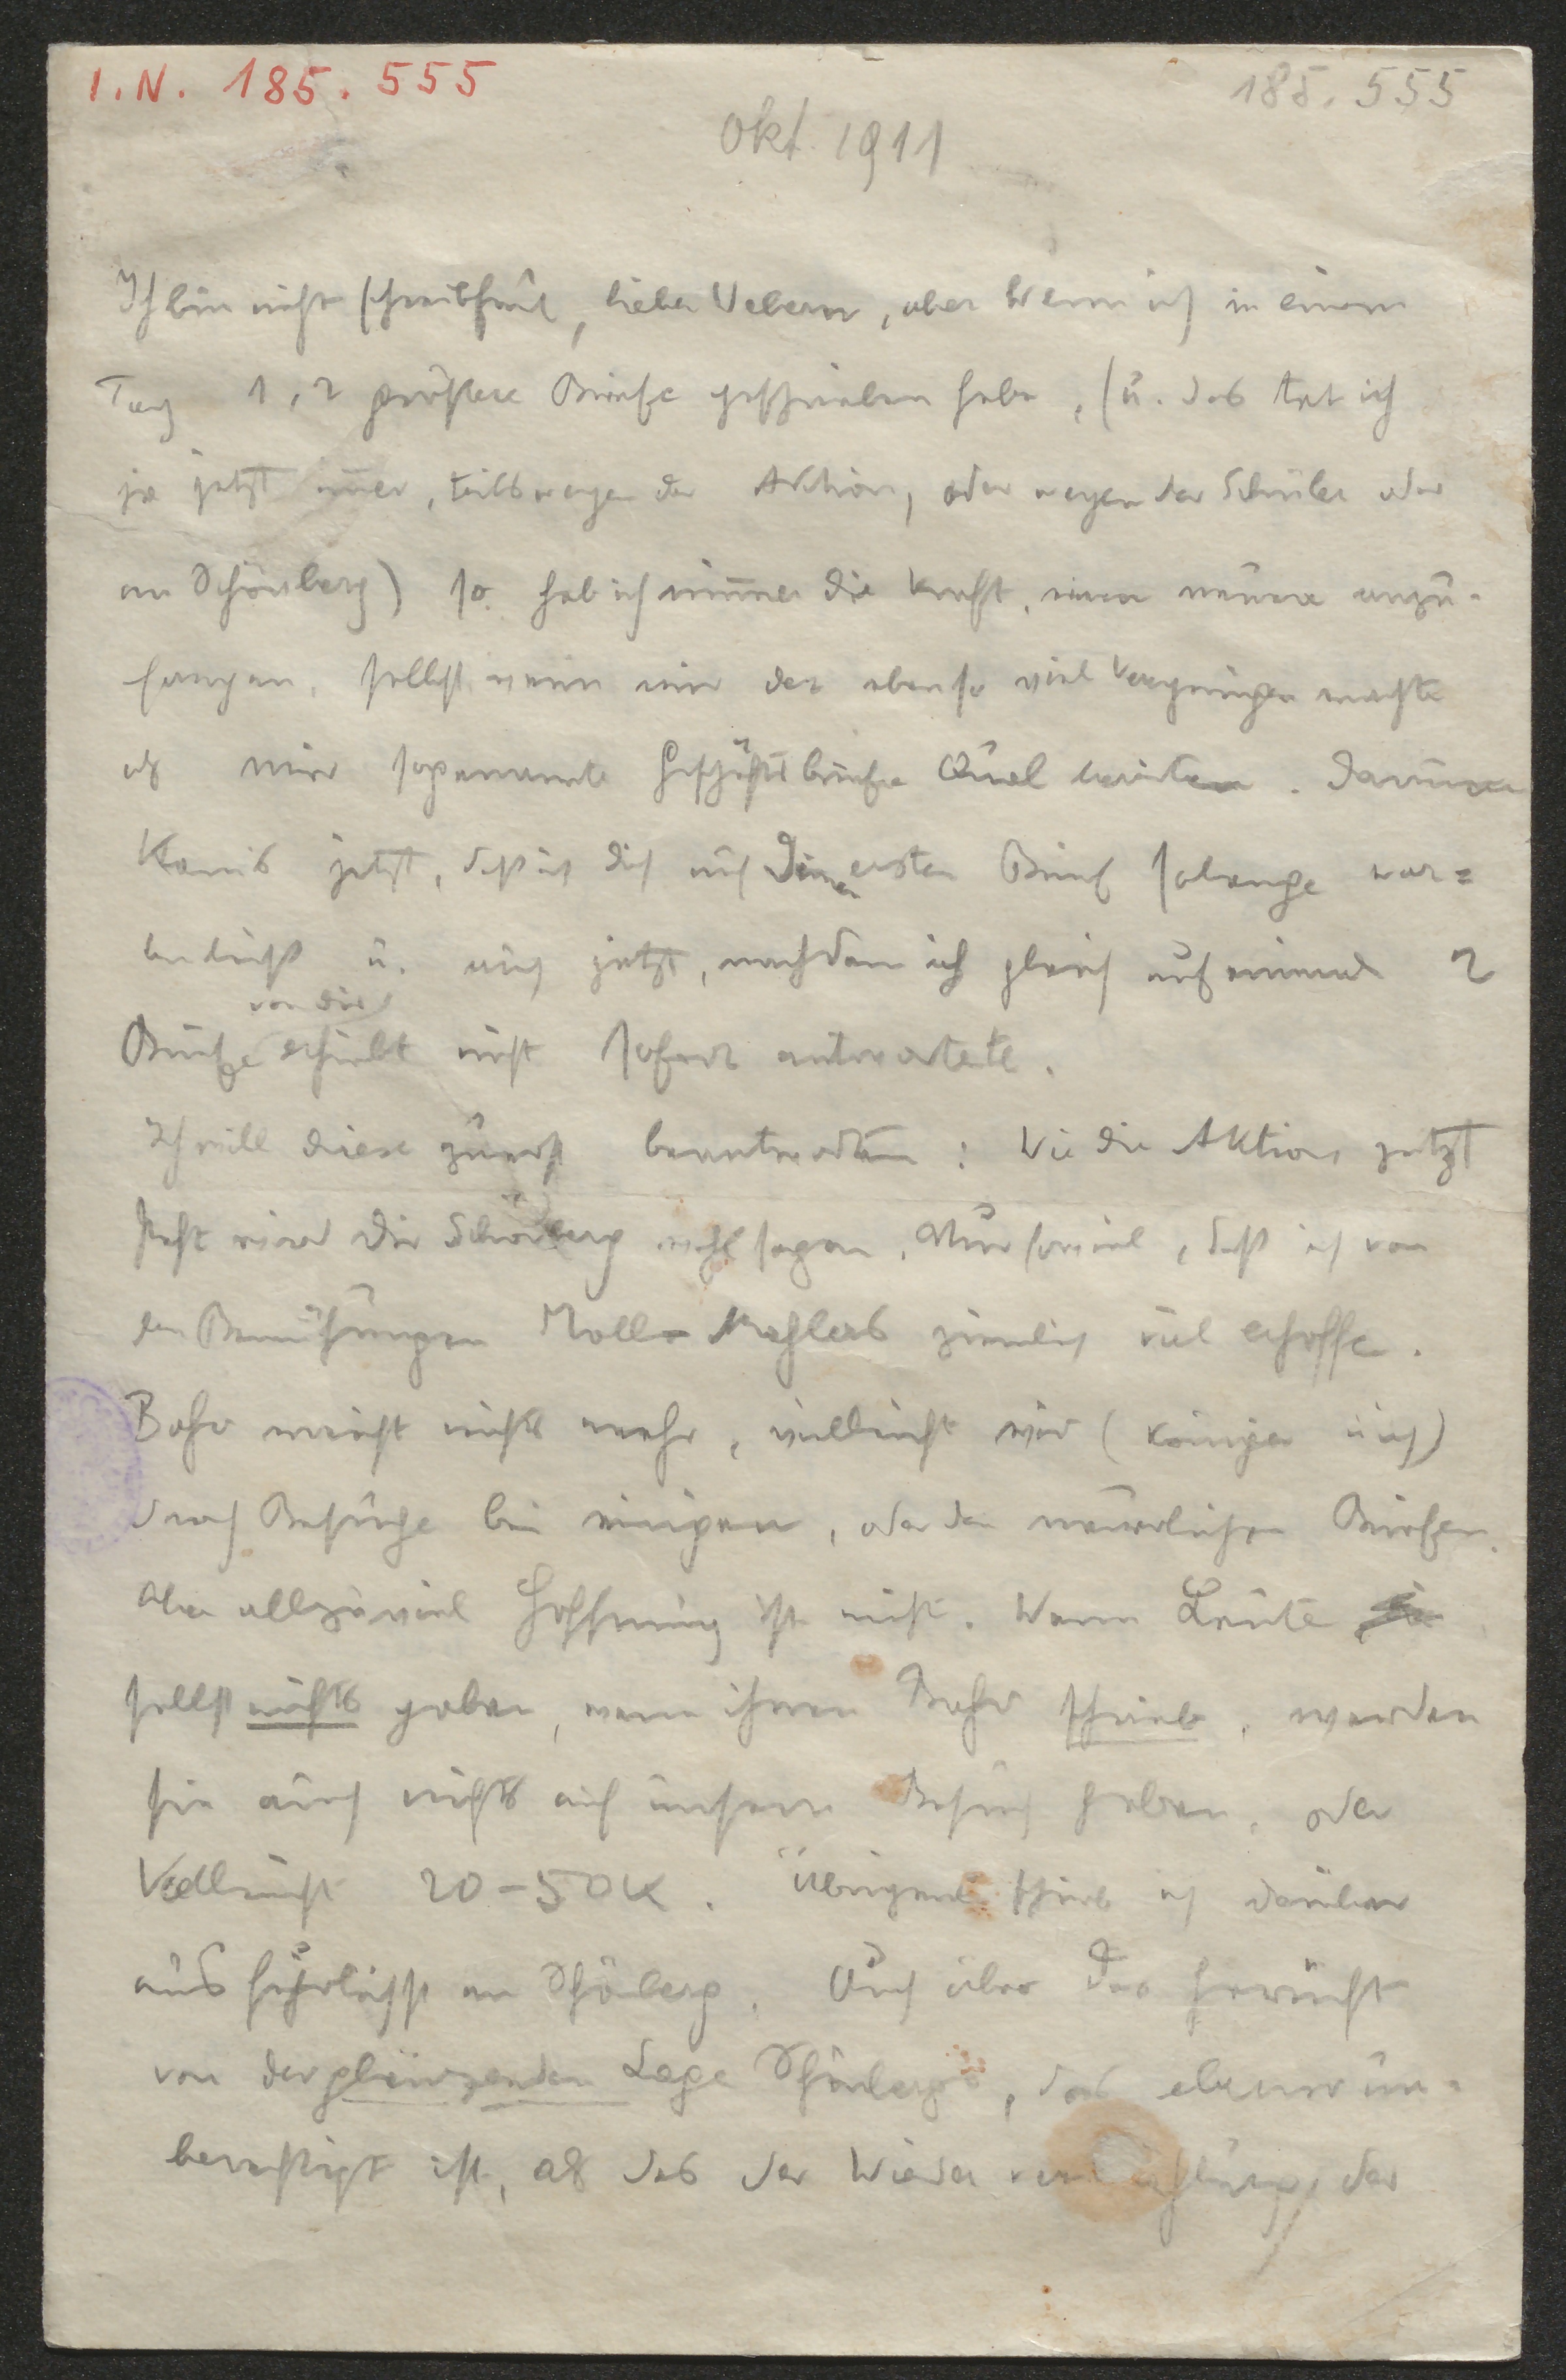 I.N. 185.555
185.555
Okt. 1911
Ich bin nicht schreibfaul, lieber Webern, aber wenn ich in einem
Tag 1, 2 größere Briefe geschrieben habe, (u. das tat ich
ja jetzt im̄er, teils wegen der Aktion, oder wegen der Schüler oder
an Schönberg) so hab ich nim̄er die Kraft, einen neuen anzu-
fangen, selbst wenn mir der ebenso viel Vergnügen machte
als mir sogenannte Geschäftsbriefe Qual bereiten. Darum
kam's jetzt, daß ich dich auf Deinen ersten Brief solange war=
ten ließ u. auch jetzt, nachdem ich gleich auf einmal 2
von dir
Briefe erhielt nicht sofort antwortete.
Ich will diese zuerst beantworten: Wie die Aktion jetzt
steht wird dir Schönberg wohl sagen. Nur soviel, daß ich von
den Bemühungen Moll-Mahlers ziemlich viel erhoffe.
Bahr macht nichts mehr, vielleicht wir (Königer u ich)
durch Besuche bei einigen, oder den neuerlichen Briefen.
Aber allzuviel Hoffnung ist nicht. Wenn Leute
selbst nichts gaben, wenn ihnen Bahr schrieb, werden
sie auch nichts auf unsern Besuch geben, oder
Vielleicht 20-50 K. Übrigens schrieb ich darüber
ausführlichst an Schönberg. Auch über das Gerücht
von der glänzenden Lage Schönbergs, das ebenso un-
berechtigt ist, als das der Wieder der